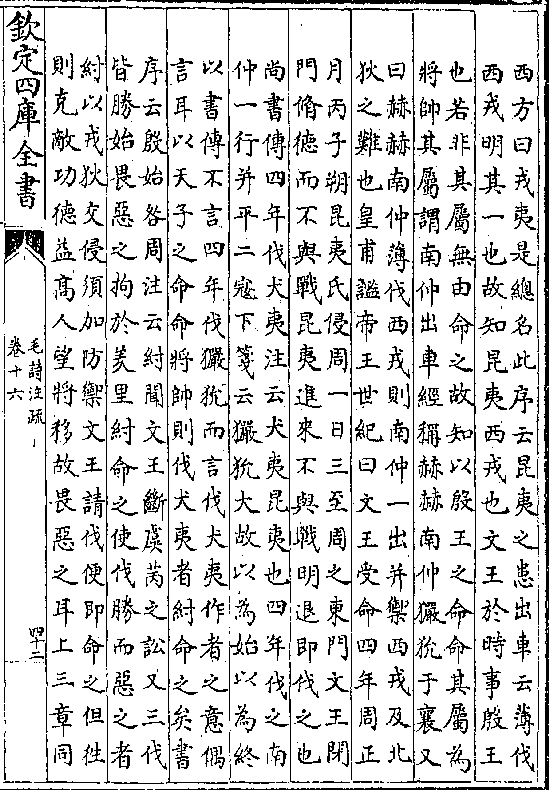 西方曰戎夷是總名此序云昆夷之患出車云薄伐
西戎明其一也故知昆夷西戎也文王於時事殷王
也若非其屬無由命之故知以殷王之命命其屬為
將帥其屬謂南仲出車經稱赫赫南仲玁狁于襄又
曰赫赫南仲薄伐西戎則南仲一出并禦西戎及北
狄之難也皇甫謐帝王世紀曰文王受命四年周正
月丙子朔昆夷氏侵周一日三至周之東門文王閉
門脩德而不與戰昆夷進來不與戰明退即伐之也
尚書傳四年伐犬夷注云犬夷昆夷也四年伐之南
仲一行并平二寇下箋云玁狁大故以為始以為終
以書傳不言四年伐玁狁而言伐犬夷作者之意偶
言耳以天子之命命將帥則伐犬夷者紂命之矣書
序云殷始咎周注云紂聞文王斷虞芮之訟又三伐
皆勝始畏惡之拘於羑里紂命之使伐勝而惡之者
紂以戎狄交侵須加防禦文王請伐便即命之但往
則克敵功德益高人望將移故畏惡之耳上三章同
欽定四庫全書
毛詩注疏
卷十六
四十二